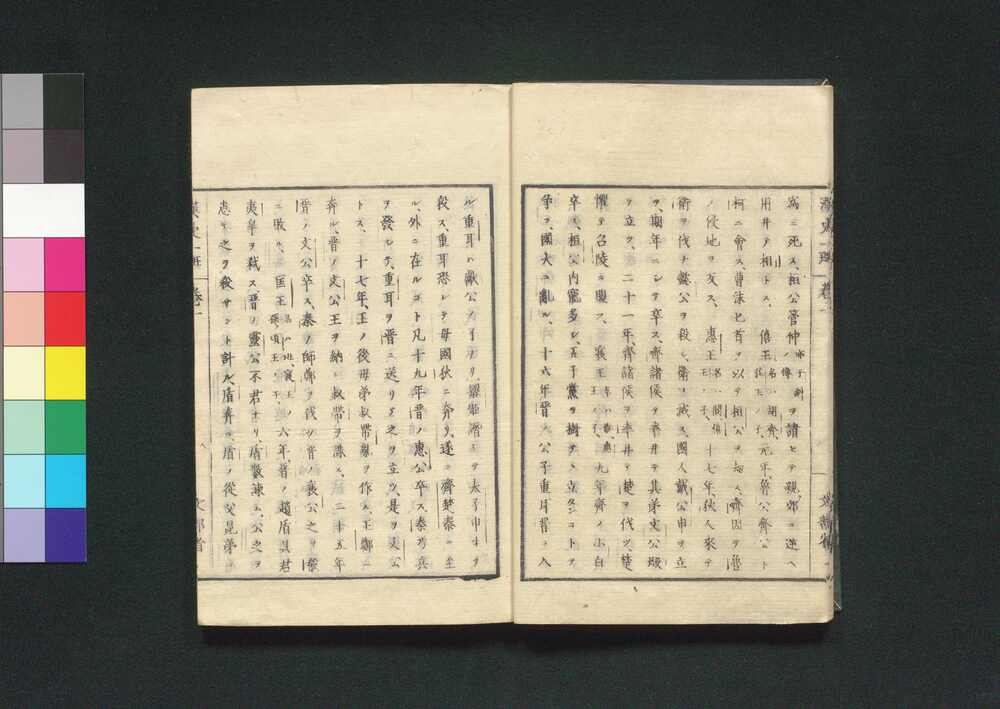 為ニ死ス、桓公管仲ヲ請ヒテ親郊ニ迎ヘ
用井テ相トス、僖王元年、魯公齊公ト
柯ニ會ス、曹沫匕首ヲ以テ桓公ヲ劫ス、齊因テ魯
ノ侵地ヲ反ス、惠王十七年、狄人來テ
衛ヲ伐チ懿公ヲ殺シ、衛ヲ滅ス、國人戴公申ヲ立
ツ、期年ニシテ卒ス、齊諸侯ヲ率井テ其弟文公燬
ヲ立ツ、二十一年、齊諸侯ヲ率井テ楚ヲ伐ツ、楚
懼テ召陵ニ盟フ、襄王九年、齊ノ小白
卒ス、桓公内寵多シ、五子黨ヲ樹テヽ立タンコトヲ
爭ヲ、國大ニ亂ル、十六年、晉ノ公子重耳晉ニ入
ル、重耳ハ獻公ノ子ナリ、驪姫譖シテ太子申生ヲ
殺ス、重耳恐レテ母國狄ニ奔リ、遂ニ齊楚秦ニ至
ル、外ニ在ルコト凡十九年、晉ノ惠公卒ス、秦乃兵
ヲ發シテ、重耳ヲ晉ニ送リ之ヲ立ツ、是ヲ文公
トス、十七年、王ノ後母弟叔帶亂ヲ作ス、王鄭ニ
奔ル、晉ノ文公王ヲ納レ叔帶ヲ誅ス、二十五年
晉ノ文公卒ス、秦ノ師鄭ヲ伐ツ、晉ノ襄公之ヲ
ニ敗ル、匡王六年、晉ノ趙盾其君
夷皐ヲ弑ス、晉ノ靈公不君ナリ、盾數諫ム、公之ヲ
患ヒ之ヲ殺サント計ル、盾奔ル、盾ノ從父昆弟
漢史一班 卷一
文部省